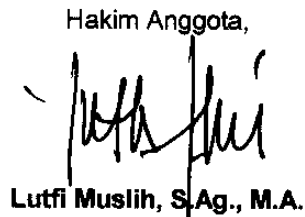 Hakim Anggota,
Lutfi Muslih, S.Ag., M.A.